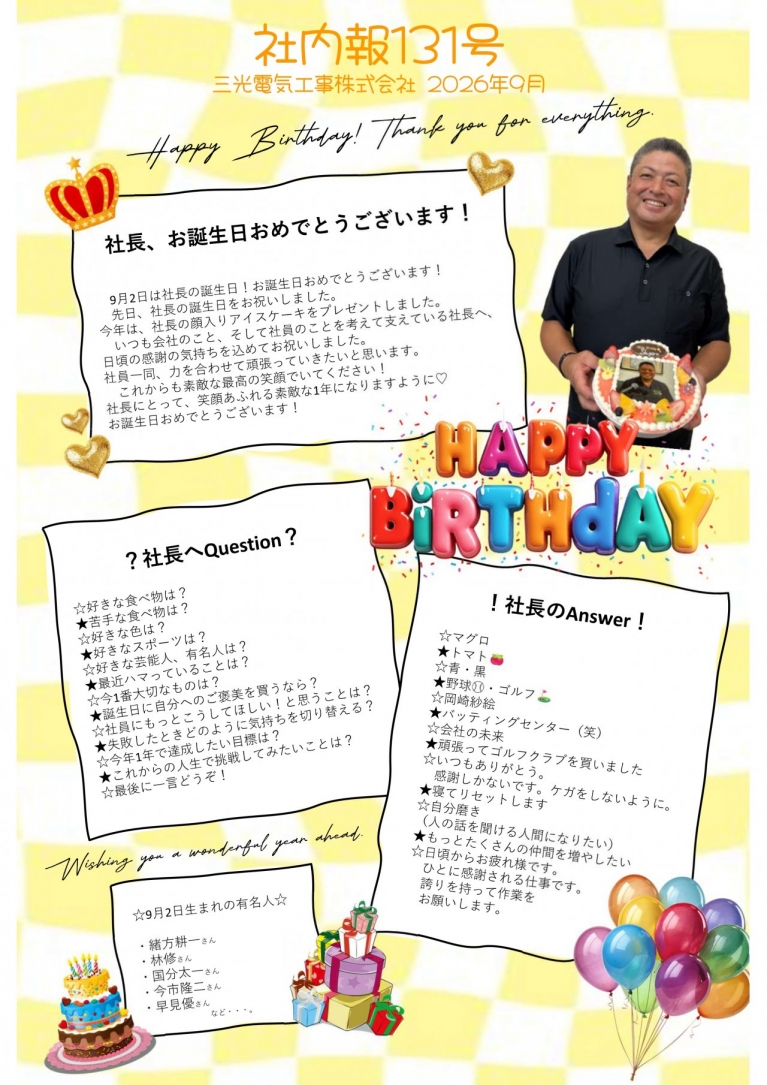 社内報131号
三光電気工事株式会社 2026年9月
Happy Birthday! Thank you for everything.
社長、お誕生日おめでとうございます！
9月2日は社長の誕生日！お誕生日おめでとうございます！
先日、社長の誕生日をお祝いしました。
今年は、社長の顔入りアイスケーキをプレゼントしました。
いつも会社のこと、そして社員のことを考えて支えている社長へ、
日頃の感謝の気持ちを込めてお祝いしました。
社員一同、力を合わせて頑張っていきたいと思います。
これからも素敵な最高の笑顔でいてください！
社長にとって、笑顔あふれる素敵な1年になりますように♡
お誕生日おめでとうございます！
HAPPY
BiRTHdAY
？社長へQuestion？
☆好きな食べ物は？
★苦手な食べ物は？
☆好きな色は？
★好きなスポーツは？
☆好きな芸能人、有名人は？
★最近ハマっていることは？
☆今1番大切なものは？
★誕生日に自分へのご褒美を買うなら？
☆社員にもっとこうしてほしい！と思うことは？
★失敗したときどのように気持ちを切り替える？
☆今年1年で達成したい目標は？
★これからの人生で挑戦してみたいことは？
☆最後に一言どうぞ！
！社長のAnswer！
☆マグロ
★トマト🍅
☆青・黒
★野球⚾・ゴルフ⛳
☆岡崎紗絵
★バッティングセンター（笑）
☆会社の未来
★頑張ってゴルフクラブを買いました
☆いつもありがとう。
感謝しかないです。ケガをしないように。
★寝てリセットします
☆自分磨き
（人の話を聞ける人間になりたい）
★もっとたくさんの仲間を増やしたい
☆日頃からお疲れ様です。
ひとに感謝される仕事です。
誇りを持って作業を
お願いします。
Wishing you a wonderful year ahead.
☆9月2日生まれの有名人☆
・緒方耕一さん
・林修さん
・国分太一さん
・今市隆二さん
・早見優さん
など・・・。